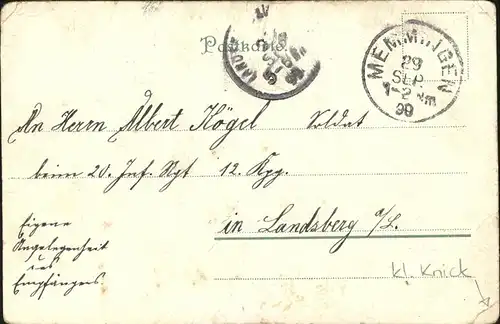 Postkarte.
MEMMINGEN
29
SEP
1-2 Nm
99
An Herrn Albert Kögel Soldat
beim 20. Inf. Rgt 12. Kpg.
in Landsberg a/L.
Eigene
Angelegenheit
des
Empfängers.
kl. Knick